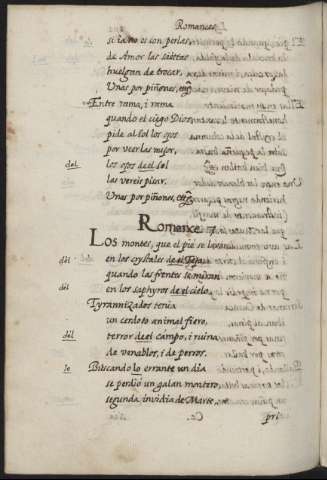 Romances
si ia no os con perlas
de Amor las saettas
huelgan de trocar,
Unas por piñones, etc.
Entre rama, i rama
quando el ciego Dios
pide al Sol los ojos
por veer las mejor,
del
los ojos de el sol
las vereis picar.
Unas por piñones, etc.
Romance. 7.
Los montes, que el pie se lavan
dèl en los cristales de el Tajo,
quando las frentes se miran
dèl en los saphyros de el cielo,
Tyrannizados tenia
un cerdoso animal fiero,
dèl terror de el campo, i ruina
de venablos, i de perros.
le Buscando lo errante un dia
se perdiò un galan montero,
segunda invidia de Marte,
Cc. pri